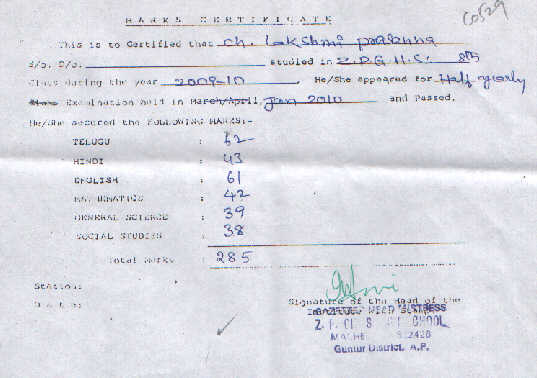 C0529
MARKS CERTIFICATE
This is to Certified that Ch. Lakshmi prasanna
S/o. D/o. studied in Z.P.G.H.S. 8th
Class during the year 2009-10. He/She appeared for Half yearly
Examination held in March/April, Jan 2010 and Passed.
He/She secured the FOLLOWING MARKS:-
TELUGU : 62
HINDI : 43
ENGLISH : 61
MATHEMATICS : 42
GENERAL SCIENCE : 39
SOCIAL STUDIES : 38
Total Marks : 285
Station:
Date:
Signature of the Head of the
GAZETTED HEAD MISTRESS
Z. P. SCHOOL
Guntur District, A.P.